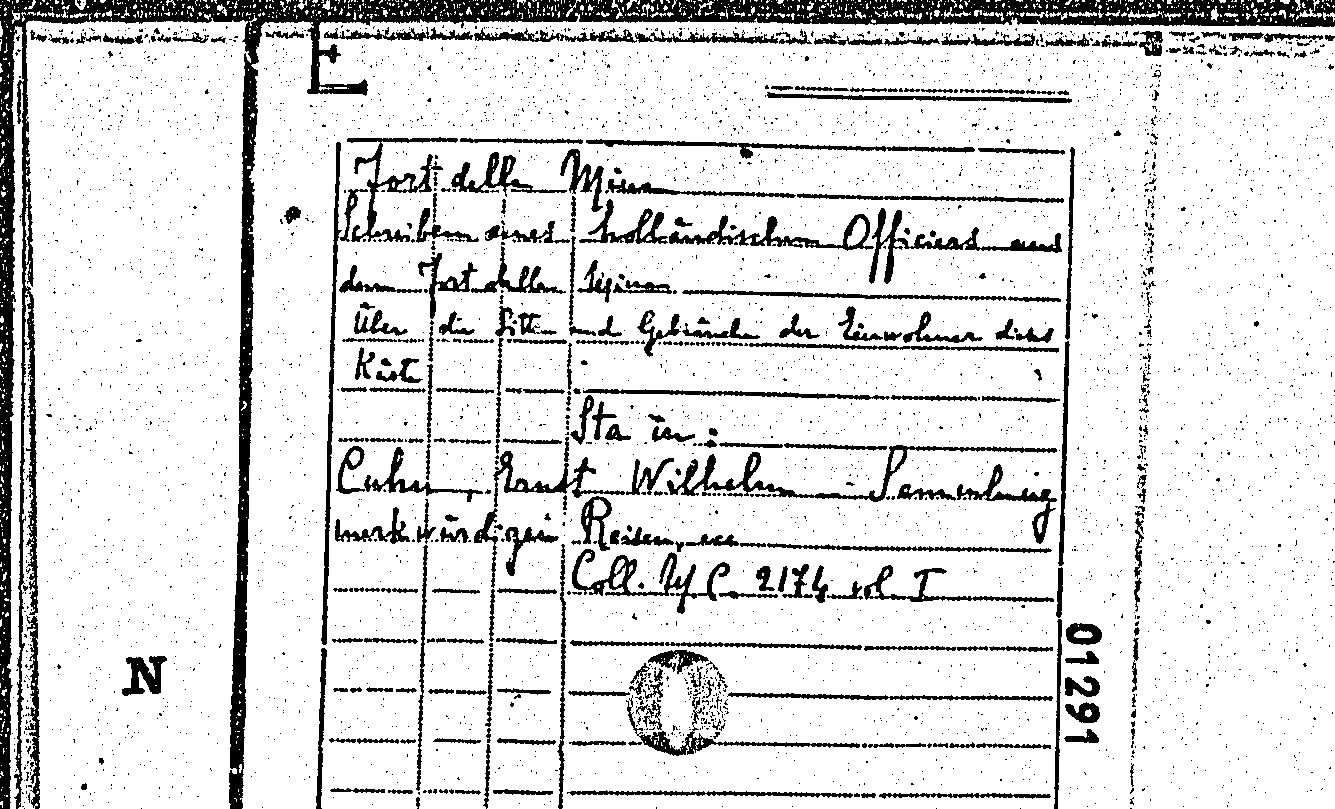 Fort della Mina
Schreiben eines holländischen Officiers aus
dem Fort della
Über die Sitten und Gebräuche der Einwohner dieses
Küste
Sta in:
Cuhn, Ernst Wilhelm - Sammlung
merkwürdigen Reisen,
Coll. 2174 vol. I
N
01291